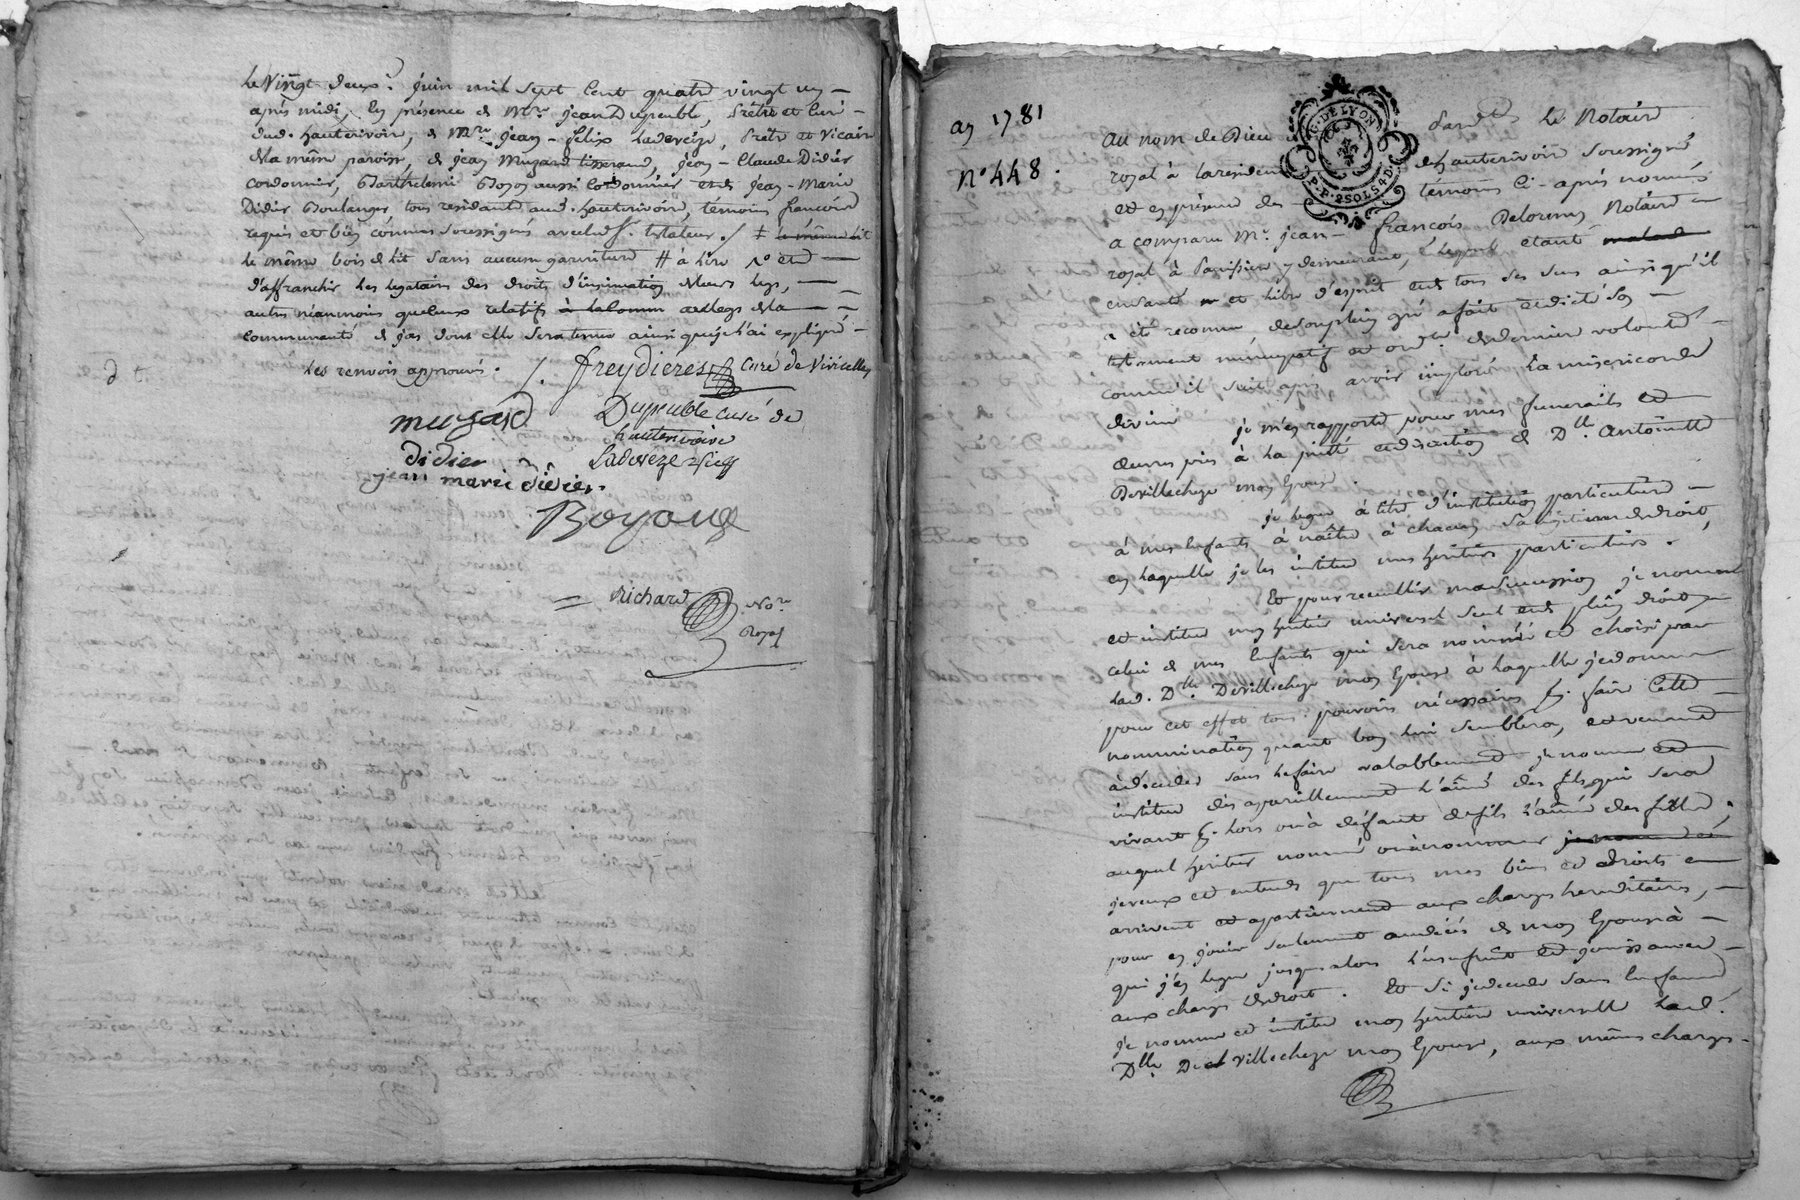 Le vingt deux.e juin mil sept cent quatre vingt un
après midi, en présence de Mre jean Dupeuble, Prêtre et Curé
dud. hauterivoire, de Mre jean-felix Ladeveze, Prêtre et Vicaire
de la même paroisse, de jean Muzard tisserand, jean-Claude Didier
cordonnier, Barthelemi Boyon aussi Cordonnier et de jean-Marie
Didier Boulanger tous residants aud. hauterivoire, témoins
requis et soussignés avec led. S. testateur ./. ‡ le même lit
le même bois de lit sans aucun garniture # à lire et
d'affranchir les legataires des droits d'insinuation de leurs legs,
autres néanmoins que ceux relatifs à la au legs de la
communauté dont elle sera tenue ainsi que je l'ai expliqué
Les renvois approuvés. /.
freydieres Curé de Viricelles
Dupeuble curé de
hauterivoire
muzard
didier
Ladeveze vic
jean marie didier.
Boyon
Richard No.re
Royal
an 1781
N° 448.
G. DE LYON
P.P. 2 SOLS 4 D.
Au nom de Dieu pardt Le Notaire
royal à la residence de hauterivoire soussigné
et en présence des témoins Ci-après nommés
a comparu Mr. jean-françois Delorme Notaire
royal à y demeurant, lequel étant malade
en santé et libre d'esprit et de tous ses sens ainsi qu'il
a été reconnu de son plein gré a fait et dicté son
testament nuncupatif et ord.re de derniere volonté
comme il suit après avoir imploré La misericorde
divine je m'en rapporte pour mes funerailles et
œuvres pies à La piété et discretion de Dlle. Antoinette
Devillecheze mon Epouse.
je legue à titre d'institution particuliere
à mes Enfants à naître à chacun sa légitime de droit,
en laquelle je les institue mes heritiers particuliers.
Et pour recueillir ma succession je nomme
et institue mon heritier universel seul et de plein droit
celui de mes Enfants qui sera nommé et choisi par
lad. Dlle. Devillecheze mon Epouse à laquelle je donne
pour cet effet tous pouvoirs nécessaires pr. faire Cette
nomination quant bon lui semblera, et venant
à décéder sans le faire valablement je nomme et
institue dès apresent L'ainé des fils qui sera
vivant pr. lors ou à défaut de fils L'ainée des filles,
auquel heritier nommé ou à nommer je nomme et
je veux et entends que tous mes biens et droits
arrivent et apartiennent aux charges hereditaires,
pour en jouir seulement au décès de mon Epouse à
qui j'en legue jusques alors L'usufruit et jouissance
aux charges de droit. Et si je decede sans Enfants
je nomme et institue mon heritiere universelle lad.
Dlle. Devillecheze mon Epouse, aux mêmes charges